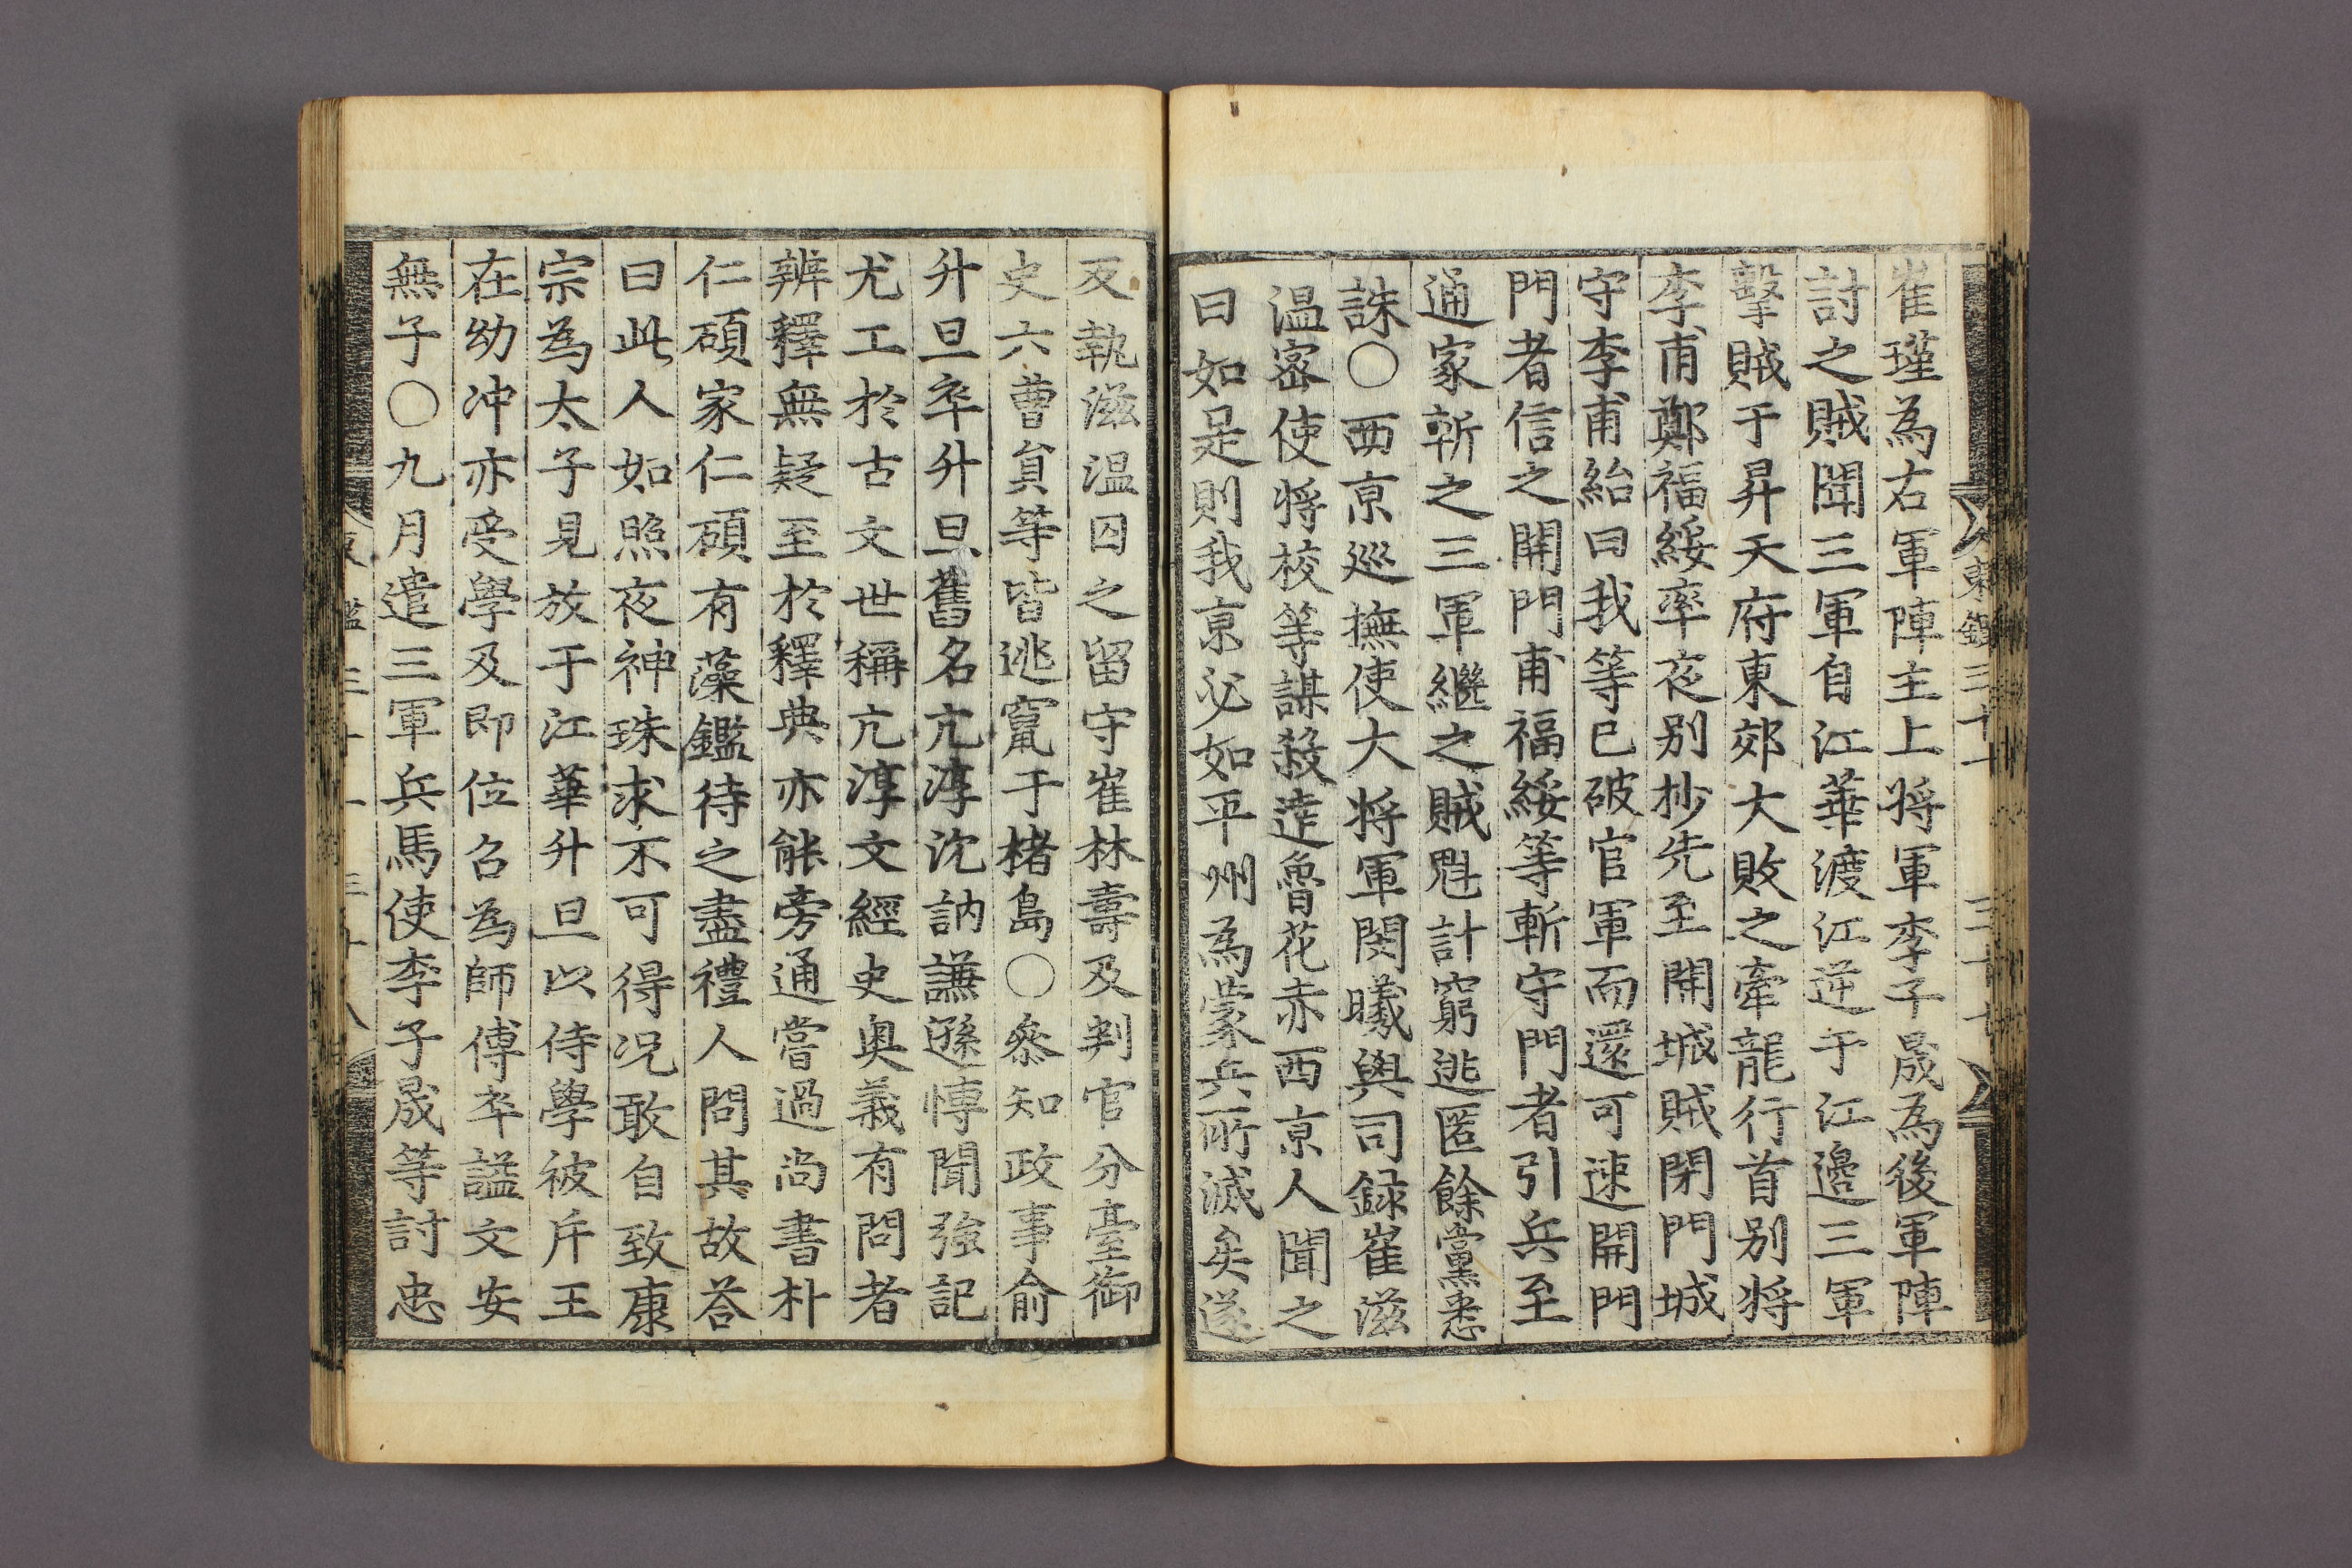 崔瑾為右軍陣主上將軍李子晟為後軍陣
討之賊聞三軍自江華渡江逆于江邊三軍
擊賊于昇天府東郊大敗之牽龍行首別將
李甫鄭福綏率夜別抄先至開城賊閉門城
守李甫紿曰我等已破官軍而還可速開門
門者信之開門甫福綏等斬守門者引兵至
通家斬之三軍繼之賊魁計窮逃匿餘黨悉
誅○西京巡撫使大將軍閔曦與司錄崔滋
温密使將校等謀殺達魯花赤西京人聞之
曰如是則我京必如平州為蒙兵所滅矣遂
反執滋温囚之留守崔林壽及判官分臺御
史六曹員等皆逃竄于楮島○叅知政事俞
升旦卒升旦舊名亢淳沈訥謙遜愽聞強記
尤工於古文世稱亢淳文經史奥義有問者
辨釋無疑至於釋典亦能旁通嘗過尚書朴
仁碩家仁碩有藻鑑待之盡禮人問其故荅
曰此人如照夜神珠求不可得况敢自致康
宗為太子見放于江華升旦以侍學被斥王
在幼冲亦受學及即位召為師傅卒謚文安
無子○九月遣三軍兵馬使李子晟等討忠